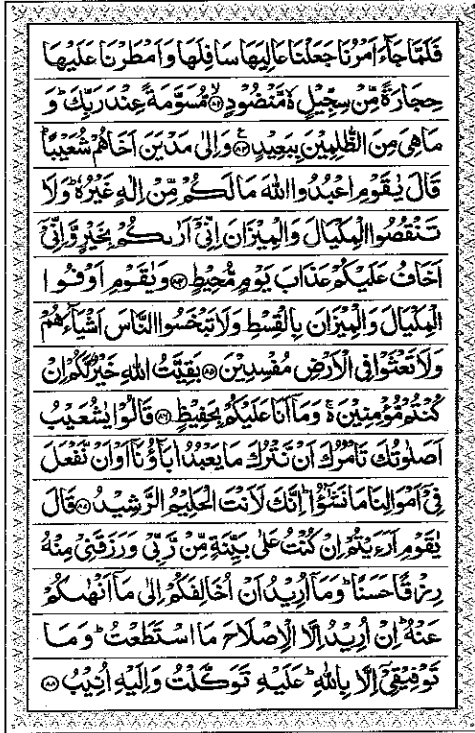 فَلَمَّا جَآءَ اَمْرُنَا جَعَلْنَا عَالِیَهَا سَافِلَهَا وَاَمْطَرْنَا عَلَیْهَا
حِجَارَةً مِّنْ سِجِّیْلٍ ۙ۬ مَّنْضُوْدٍ ﴿۸۲﴾ۙ مُّسَوَّمَةً عِنْدَ رَبِّكَ ؕ وَ
مَا هِیَ مِنَ الظّٰلِمِیْنَ بِبَعِیْدٍ ﴿۸۳﴾۠ وَاِلٰی مَدْیَنَ اَخَاهُمْ شُعَیْبًا ؕ
قَالَ یٰقَوْمِ اعْبُدُوا اللّٰهَ مَا لَكُمْ مِّنْ اِلٰهٍ غَیْرُهٗ ؕ وَلَا
تَنْقُصُوا الْمِكْیَالَ وَالْمِیْزَانَ اِنِّیْۤ اَرٰىكُمْ بِخَیْرٍ وَّاِنِّیْۤ
اَخَافُ عَلَیْكُمْ عَذَابَ یَوْمٍ مُّحِیْطٍ ﴿۸۴﴾ وَیٰقَوْمِ اَوْفُوا
الْمِكْیَالَ وَالْمِیْزَانَ بِالْقِسْطِ وَلَا تَبْخَسُوا النَّاسَ اَشْیَآءَهُمْ
وَلَا تَعْثَوْا فِی الْاَرْضِ مُفْسِدِیْنَ ﴿۸۵﴾ بَقِیَّتُ اللّٰهِ خَیْرٌ لَّكُمْ اِنْ
كُنْتُمْ مُّؤْمِنِیْنَ ۚ۬ وَمَاۤ اَنَا عَلَیْكُمْ بِحَفِیْظٍ ﴿۸۶﴾ قَالُوْا یٰشُعَیْبُ
اَصَلٰوتُكَ تَاْمُرُكَ اَنْ نَّتْرُكَ مَا یَعْبُدُ اٰبَآؤُنَاۤ اَوْ اَنْ نَّفْعَلَ
فِیْۤ اَمْوَالِنَا مَا نَشٰٓؤُا ؕ اِنَّكَ لَاَنْتَ الْحَلِیْمُ الرَّشِیْدُ ﴿۸۷﴾ قَالَ
یٰقَوْمِ اَرَءَیْتُمْ اِنْ كُنْتُ عَلٰی بَیِّنَةٍ مِّنْ رَّبِّیْ وَرَزَقَنِیْ مِنْهُ
رِزْقًا حَسَنًا ؕ وَمَاۤ اُرِیْدُ اَنْ اُخَالِفَكُمْ اِلٰی مَاۤ اَنْهٰىكُمْ
عَنْهُ ؕ اِنْ اُرِیْدُ اِلَّا الْاِصْلَاحَ مَا اسْتَطَعْتُ ؕ وَمَا
تَوْفِیْقِیْۤ اِلَّا بِاللّٰهِ ؕ عَلَیْهِ تَوَكَّلْتُ وَاِلَیْهِ اُنِیْبُ ﴿۸۸﴾